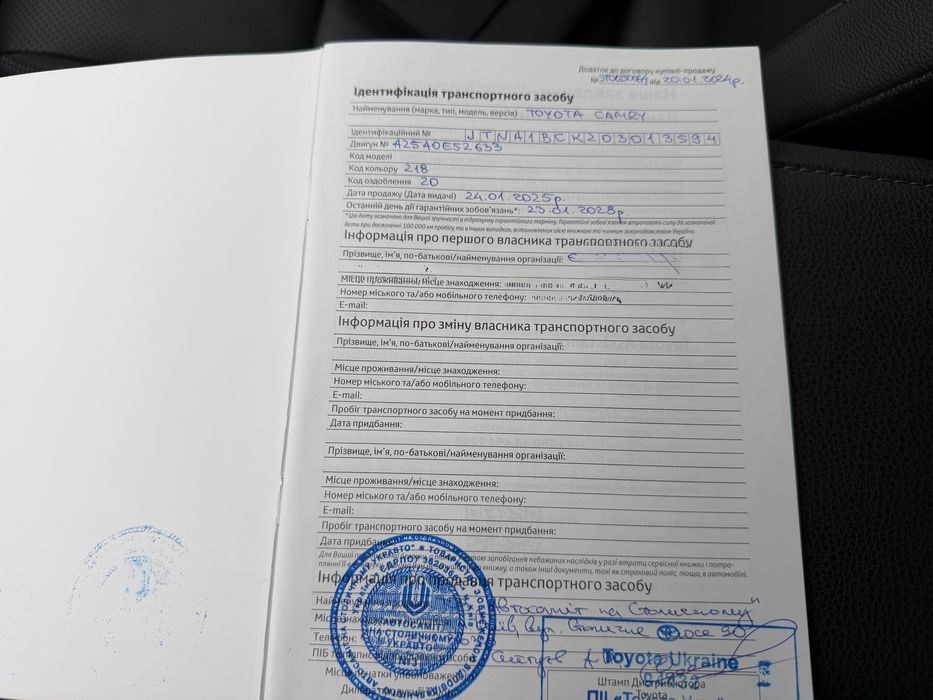 Додаток до договору купівлі-продажу
№ від 20.01.2024р.
Ідентифікація транспортного засобу
Найменування (марка, тип, модель, версія) TOYOTA CAMRY
Ідентифікаційний № JTNA1BCK203013594
Двигун № A25A0E52633
Код моделі
Код кольору 218
Код оздоблення 20
Дата продажу (Дата видачі) 24.01.2025р.
Останній день дії гарантійних зобов'язань*: 23.01.2028р
*Цю дату зазначено для Вашої зручності в підрахунку гарантійного терміну. Гарантійні зобов'язання втрачають силу до зазначеної
дати при досягненні 100 000 км пробігу та в інших випадках, встановлених цією книжкою та чинним законодавством України
Інформація про першого власника транспортного засобу
Прізвище, ім'я, по-батькові/найменування організації:
Місце проживання/місце знаходження:
Номер міського та/або мобільного телефону:
E-mail:
Інформація про зміну власника транспортного засобу
Прізвище, ім'я, по-батькові/найменування організації:
Місце проживання/місце знаходження:
Номер міського та/або мобільного телефону:
E-mail:
Пробіг транспортного засобу на момент придбання:
Дата придбання:
Прізвище, ім'я, по-батькові/найменування організації:
Місце проживання/місце знаходження:
Номер міського та/або мобільного телефону:
E-mail:
Пробіг транспортного засобу на момент придбання:
Дата придбання:
Для Вашої запобігання небажаних наслідків у разі втрати сервісної книжки і
книжку, а також інші документи, такі як страховий поліс, тощо, в автомобілі.
Інформація про продавця транспортного засобу
Автосаміт на Столичному"
Місце Київ, вул. Столичне шосе 90
Телефон:
ПІБ
Toyota Ukraine
Штамп Дистриб'ютора
Toyota
"АВТОСАМІТ
НА СТОЛИЧНОМУ
УКРАВТО"
№1